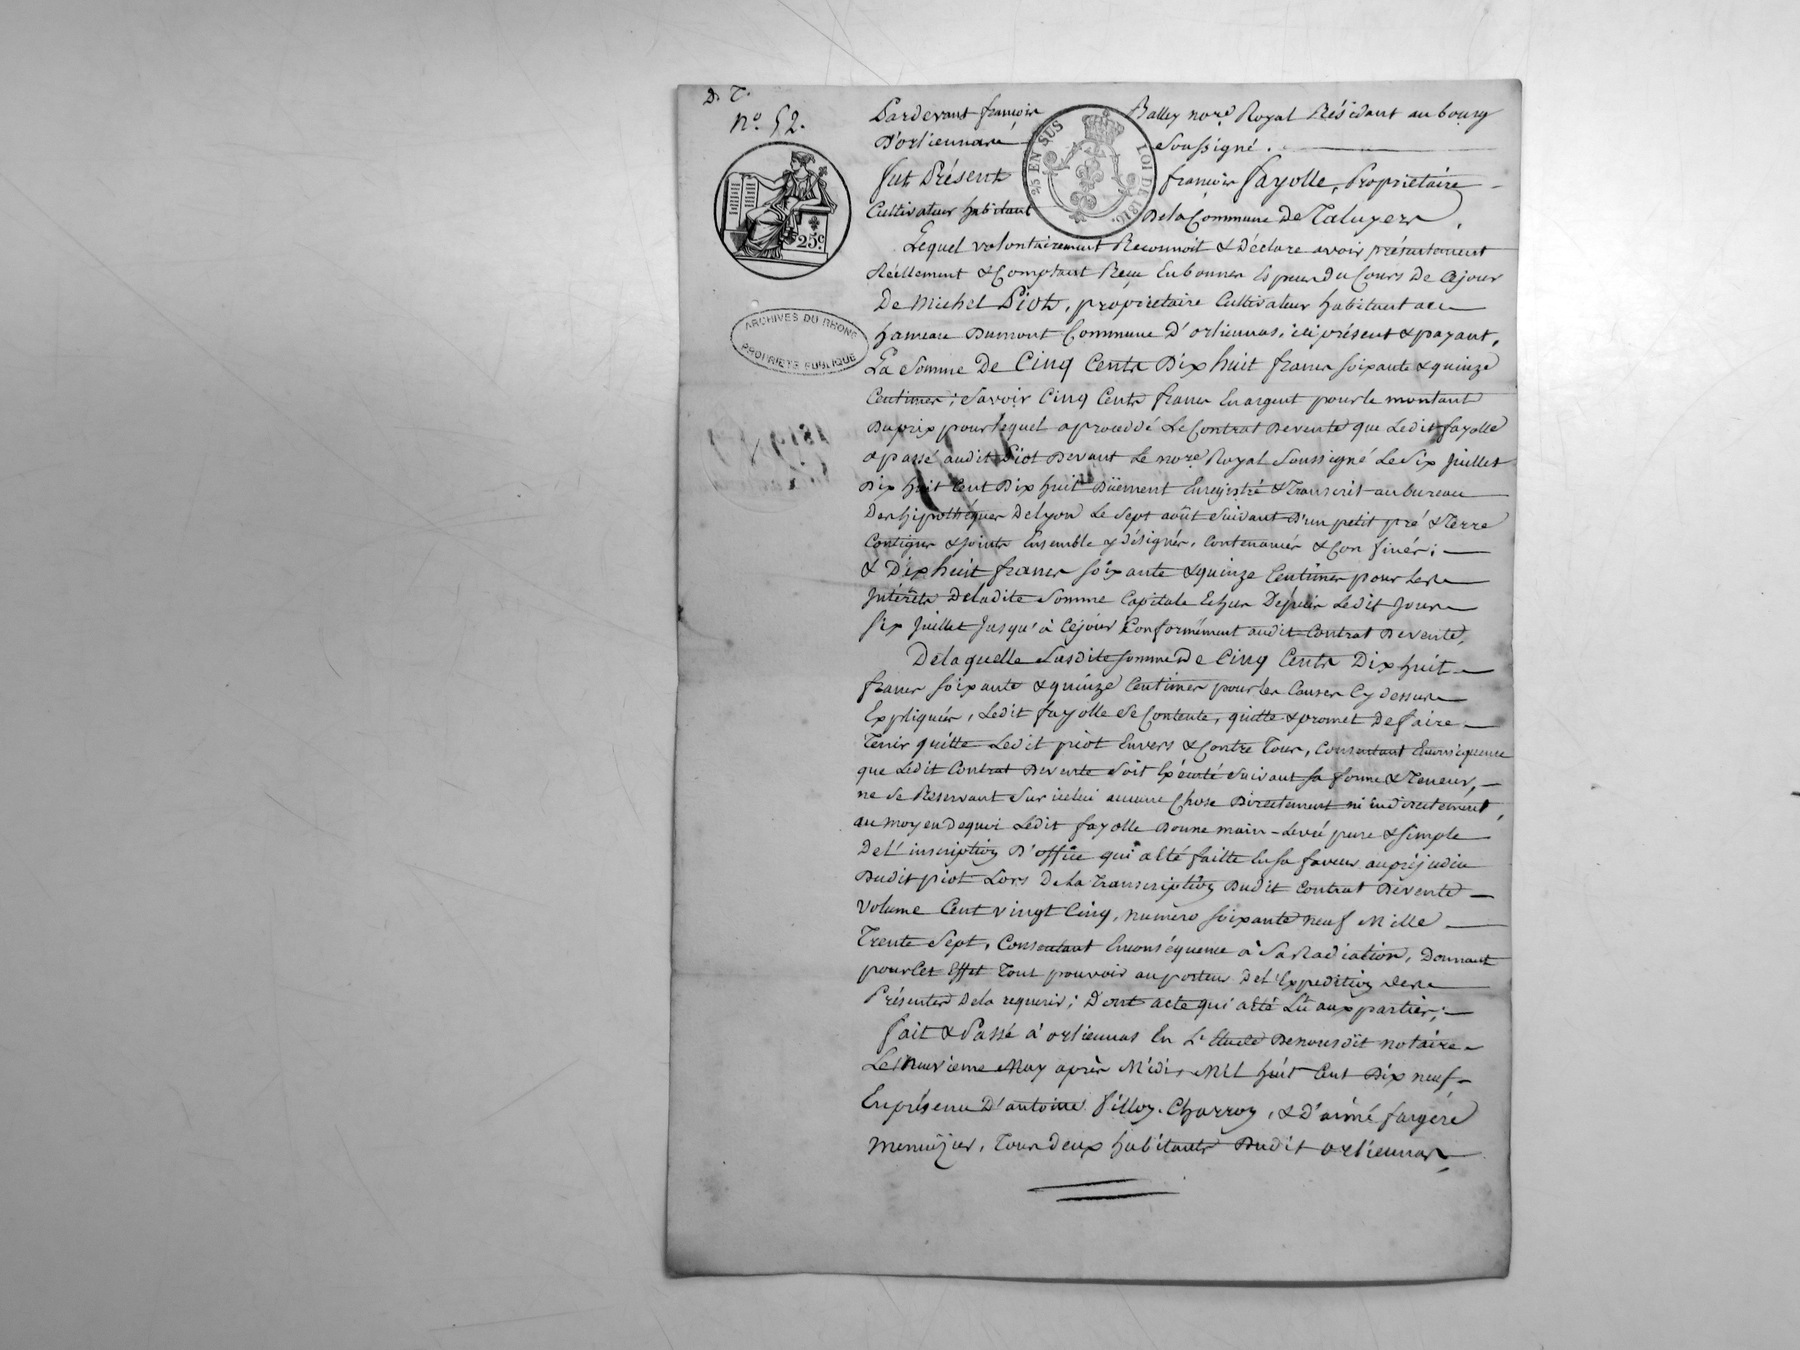 D. T.
n.° 52.
25 EN SUS
LOI DE 1816.
25c.
ARCHIVES DU RHONE
PROPRIETE PUBLIQUE
Pardevant françois Balley no.re Royal Résidant au bourg
D'orliennas Soussigné.
fut Présent françois fayolle, Proprietaire
Cultivateur habitant De la Commune De Taluyers,
Lequel volontairement Reconnoit & Déclare avoir présentement
Réellement & Comptant Reçu En bonnes Espèces Du Cours De Cejour
De Michel Piot, propriétaire Cultivateur habitant au
hameau Dumont Commune D'orliennas, ici présent & payant,
La Somme De Cinq Cents Dix huit francs soixante & quinze
Centimes; Savoir Cinq Cents francs En argent pour le montant
Du prix pour lequel a procédé Le Contrat De vente que Ledit fayolle
a passé audit Piot Devant Le no.re Royal Soussigné Le Six Juillet
Dix huit Cent Dix huit Düement Enregistré & Transcrit au bureau
Des hipothéques De lyon Le Sept août Suivant D'un petit pré & Terre
Contigus & joints Ensemble y désignés, Contenancés & Confinés;
& Dix huit francs soixante & quinze Centimes pour Les
Intérêts De ladite Somme Capitale Echus Depuis Ledit Jour
Six Juillet Jusqu'à Cejour Conformément audit Contrat De vente,
De laquelle Susdite somme De Cinq Cents Dix huit
francs soixante & quinze Centimes pour les Causes Cy dessus
Expliquées, Ledit fayolle Se Contente, quitte & promet De faire
Tenir quitte Ledit piot Envers & Contre Tous, Consentant Enconséquence
que Ledit Contrat De vente Soit Exécuté Suivant sa forme & Teneur,
ne Se Réservant Sur icelui aucune Chose Directement ni indirectement,
au moyen De quoi Ledit fayolle Donne main-Levée pure & simple
De L'inscription D'office qui a été faitte En sa faveur au préjudice
Dudit piot Lors De La Transcription Dudit Contrat De vente
Volume Cent vingt Cinq, numéro soixante neuf Mille
Trente Sept, Consentant Enconséquence à Sa Radiation, Donnant
pour Cet Effet Tout pouvoir au porteur De L'Expedition Des
Présentes De la requerir; Dont acte qui a été Lû aux parties;
fait & Passé à orliennas En L'Etude De nousdit notaire
Le Neuvieme May après Midi, Mil huit Cent Dix neuf
En présence D'antoine Pilloz Charron, & D'aimé fargere
Menuizier, Tous Deux habitants Dudit orliennas,